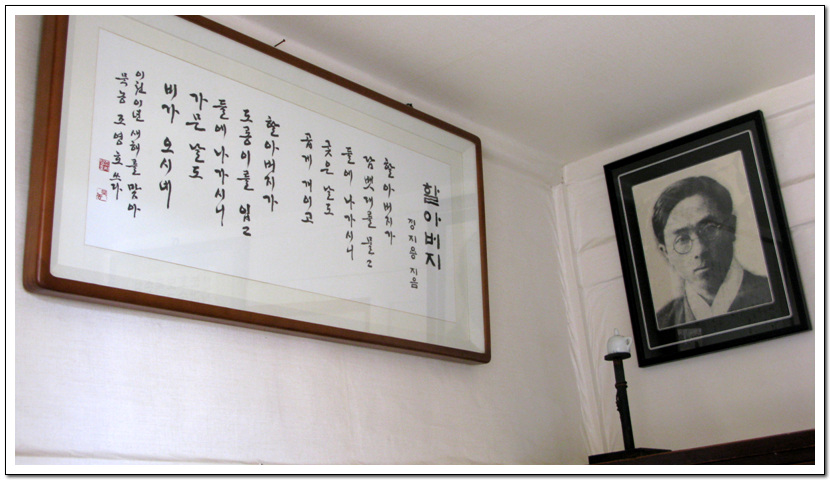 할아버지
정지용 지음
할아버지가
담뱃대를 물고
들에 나가시니
궂은 날도
곱게 개이고
할아버지가
도롱이를 입고
들에 나가시니
가문 날도
비가 오시네
이천이년 새해를 맞아
묵농 조영호 쓰다